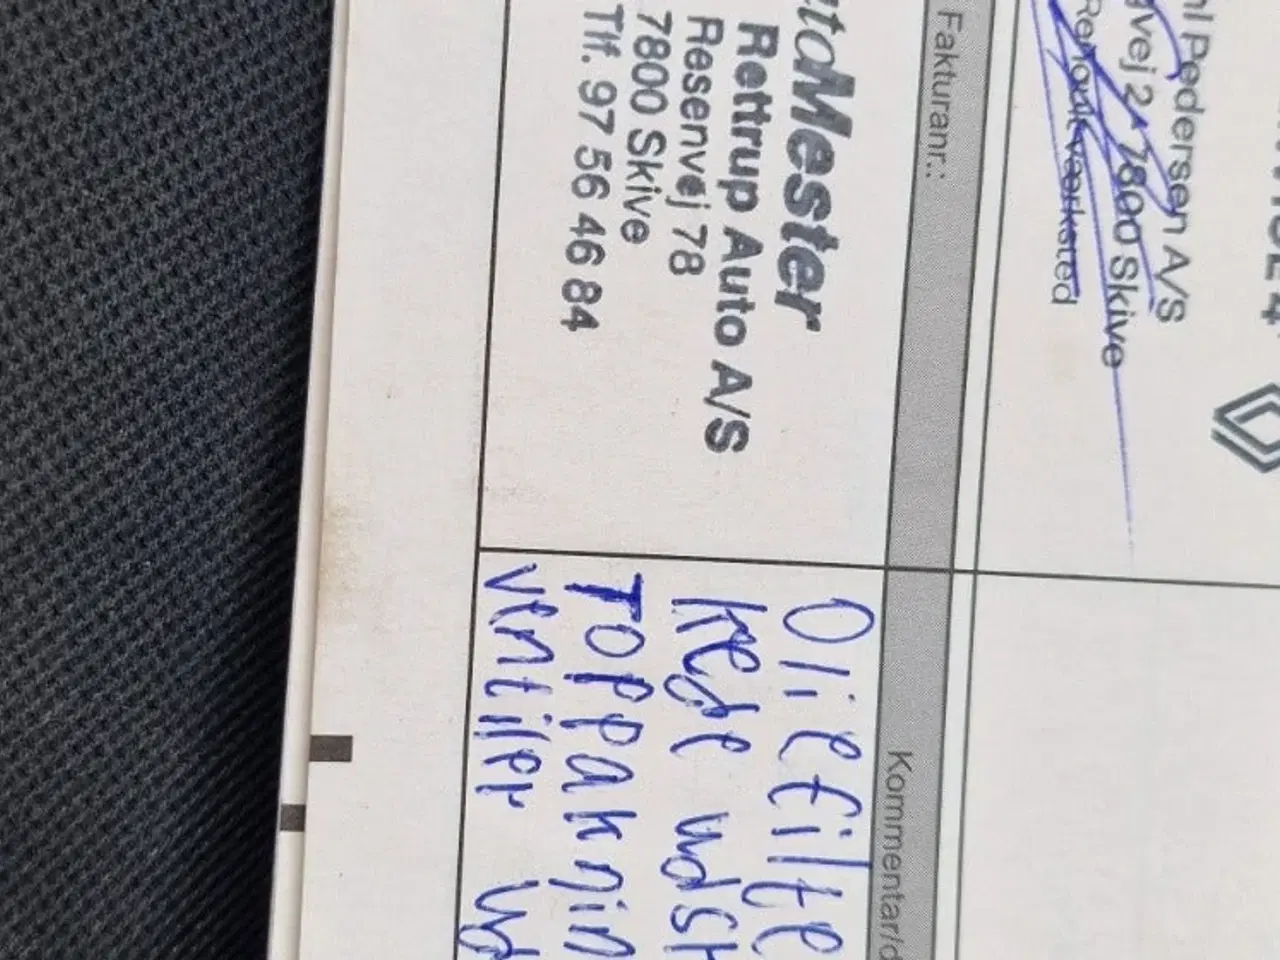 Pedersen A/S
2 - 7800 Skive
Renault værksted
Fakturanr.:
Kommentar/d
utoMester
Rettrup Auto A/S
Resenvej 78
7800 Skive
Tlf. 97 56 46 84
Oliefilte
kede udst
Toppaknin
ventiler ud